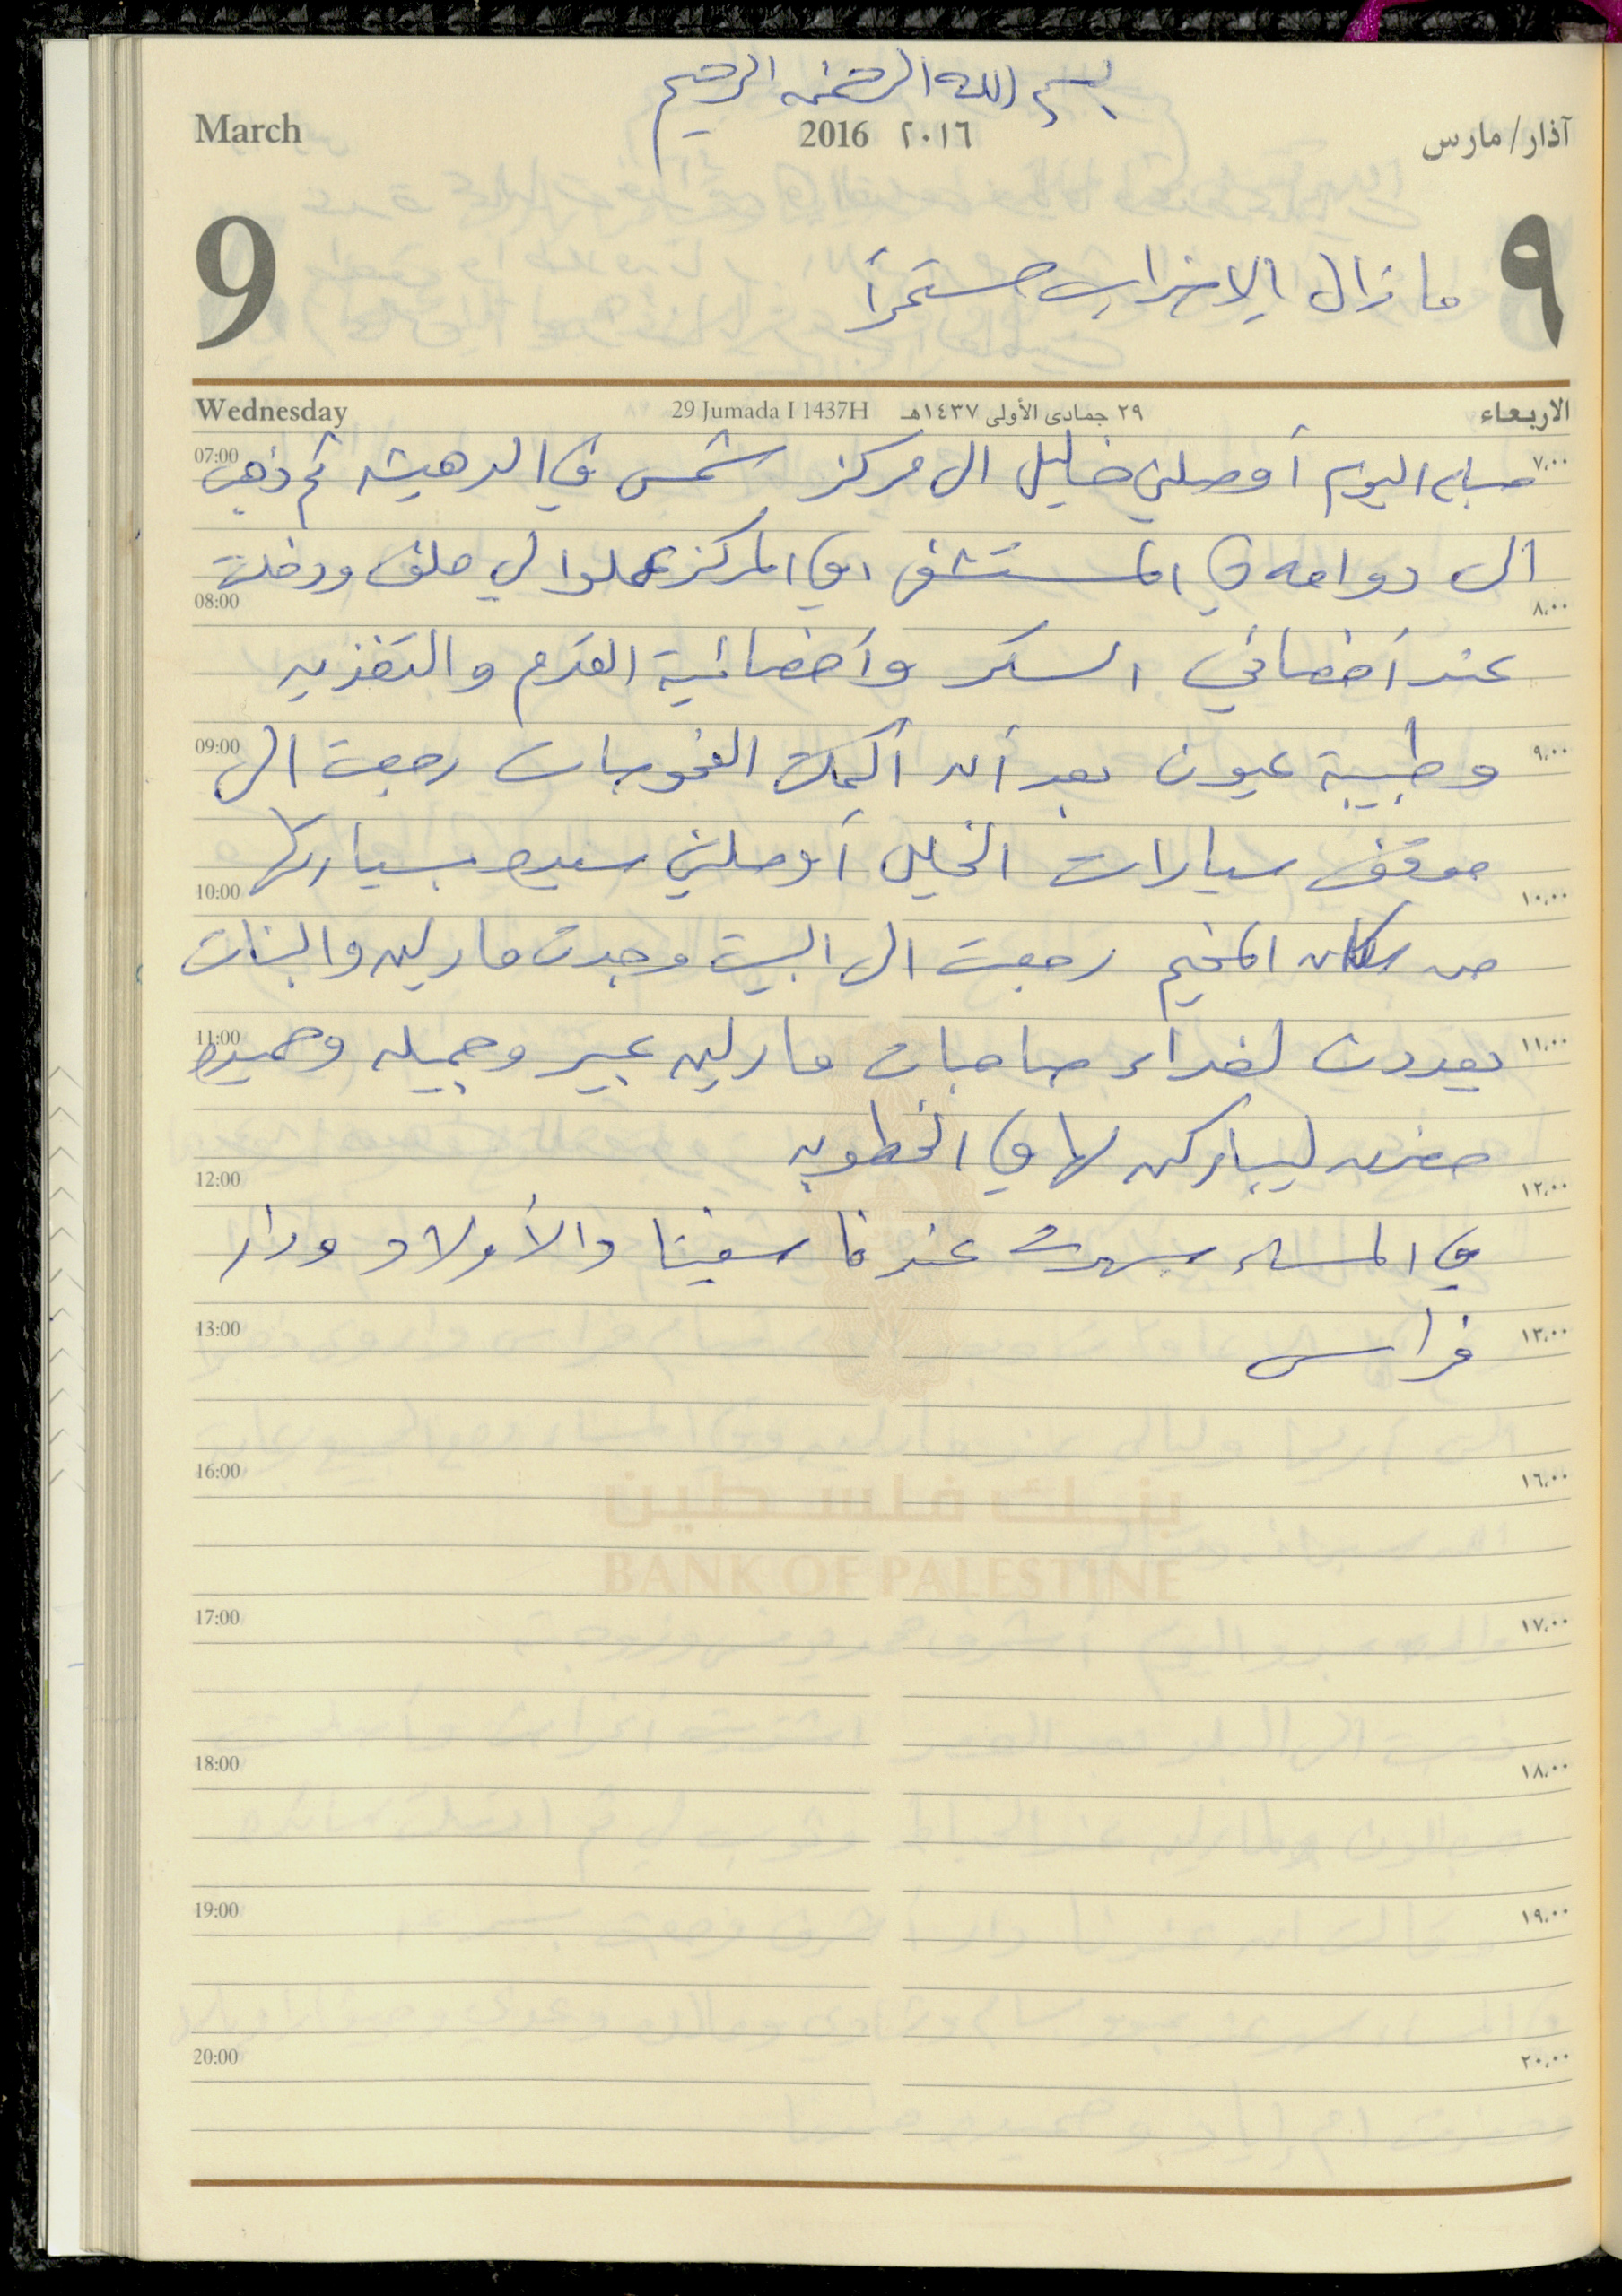 بسم الله الرحمن الرحيم
March 2016 ٢٠١٦ آذار/مارس
9 ما زال الإضراب مستمراً ٩
Wednesday 29 Jumada I 1437H ٢٩ جمادى الأولى ١٤٣٧هـ الاربعاء
07:00 صباح اليوم أوصلني خليل الى مركز شمس في الدهيشه ثم ذهب ٧,٠٠
الى دوامه في المستشفى في المركز عملوا لي ملف ودخلت
08:00 ٨,٠٠
عند أخصائي السكر وأخصائية القدم والتغذيه
09:00 وطبيبة عيون بعد أن أكملت الفحوصات رجعت الى ٩,٠٠
موقف سيارات الخليل أوصلني سيده بسيارتها
10:00 ١٠,٠٠
من سكان المخيم رجعت الى البيت وجدت مارلين والبنات
11:00 يعددن لغداء صاحبات مارلين عبير وجميله وحميده ١١,٠٠
حضرن ليباركن لها في الخطوبه
12:00 ١٢,٠٠
في المساء سهرت عندنا سفينا والأولاد ودار
13:00 فراس ١٣,٠٠
16:00 ١٦,٠٠
بنك فلسطين
BANK OF PALESTINE
17:00 ١٧,٠٠
18:00 ١٨,٠٠
19:00 ١٩,٠٠
20:00 ٢٠,٠٠